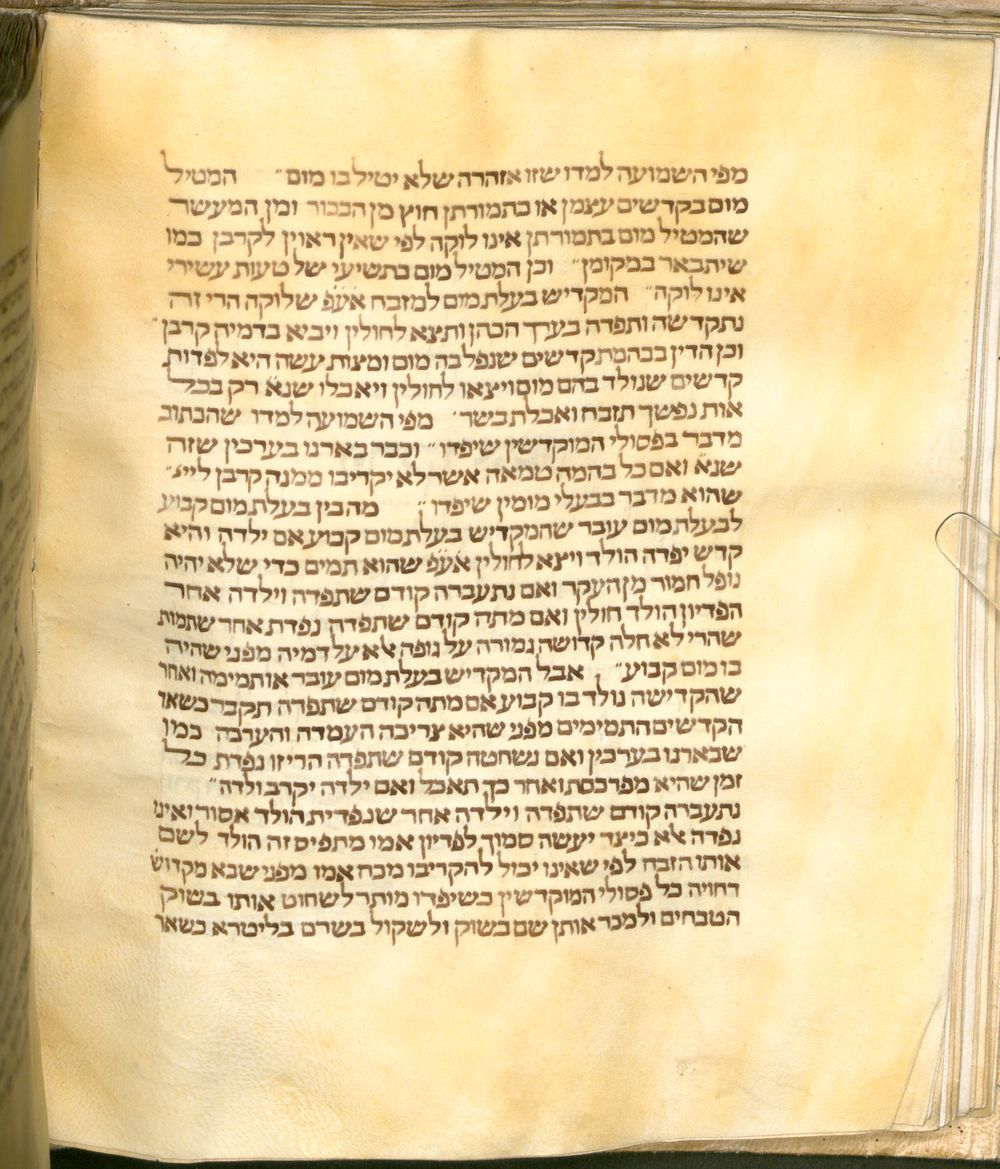 מפי השמועה למדו שזו אזהרה שלא יטיל בו מום״ המטיל
מום בקדשים עצמן או בתמורתן חוץ מן הבכור ומן המעשר
שהמטיל מום בתמורתן אינו לוקה לפי שאין ראוין לקרבן כמו
שיתבאר במקומן״ וכן המטיל מום בתשיעי של טעות עשירי
אינו לוקה״ המקדיש בעלת מום למזבח אעפ שלוקה הרי זה
נתקדשה ותפדה בערך הכהן ותצא לחולין ויביא בדמיה קרבן״
וכן הדין בבהמת קדשים שנפל בה מום ומצות עשה היא לפדות
קדשים שנולד בהם מום ויצאו לחולין ויאכלו שנא רק בכל
אות נפשך תזבח ואכלת בשר׳ מפי השמועה למדו שהכתוב
מדבר בפסולי המוקדשין שיפדו״ וכבר בארנו בערכין שזה
שנא ואם כל בהמה טמאה אשר לא יקריבו ממנה קרבן לייי״
שהוא מדבר בבעלי מומין שיפדו״ מה בין בעלת מום קבוע
לבעלת מום עובר שהמקדיש בעלת מום קבוע אם ילדה והיא
קדש יפדה הולד ויצא לחולין אעפ שהוא תמים כדי שלא יהיה
טפל חמור מן העקר ואם נתעברה קודם שתפדה וילדה אחר
הפדיון הולד חולין ואם מתה קודם שתפדה נפדת אחר שתמות
שהרי לא חלה קדושה גמורה על גופה אלא על דמיה מפני שהיה
בו מום קבוע״ אבל המקדיש בעלת מום עובר או תמימה ואחר
שהקדישה נולד בו קבוע אם מתה קודם שתפדה תקבר כשאר
הקדשים התמימים מפני שהיא צריכה העמדה והערכה כמו
שבארנו בערכין ואם נשחטה קודם שתפדה הרי זו נפדת כל
זמן שהיא מפרכסת ואחר כך תאכל ואם ילדה יקרב ולדה״
נתעברה קודם שתפדה וילדה אחר שנפדית הולד אסור ואינו
נפדה אלא כיצד יעשה סמוך לפדיון אמו מתפיס זה הולד לשם
אותו הזבח לפי שאינו יכול להקריבו מכח אמו מפני שבא מקדושׁ
דחויה כל פסולי המוקדשין כשיפדו מותר לשחוט אותו בשוק
הטבחים ולמכר אותן שם בשוק ולשקול בשרם בליטרא כשאר